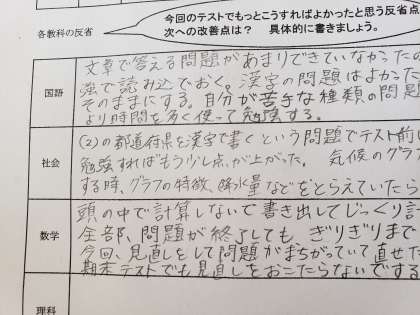 今回のテストでもっとこうすればよかったと思う反省点
各教科の反省
次への改善点は？　具体的に書きましょう。
国語
文章で答える問題があまりできていなかったの
強で読み込でおく。漢字の問題はよかった
そのままにする。自分が苦手な種類の問題
より時間を多く使って勉強する。
社会
(2)の都道府県を漢字で書くという問題でテスト前に
勉強すればもう少し点が上がった。　気候のグラフ
する時、グラフの特徴、降水量などをとらえていたら
数学
頭の中で計算しないで書き出してじっくり計
全部、問題が終了しても、ぎりぎりまで
今回、見直しをして問題がまちがっていて直せた
期末テストでも見直しをおこたらないでする
理科